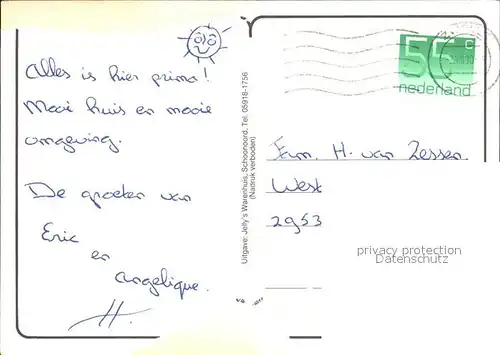 Alles is hier prima!
Mooi huis en mooie
omgeving.
De groeten van
Eric
en
Angelique.
Uitgave: Jelly's Warenhuis, Schoonoord, Tel. 05918-1756
(Nadruk verboden)
55 c
nederland
Fam. H. van Zessen
West
2953
privacy protection
Datenschutz